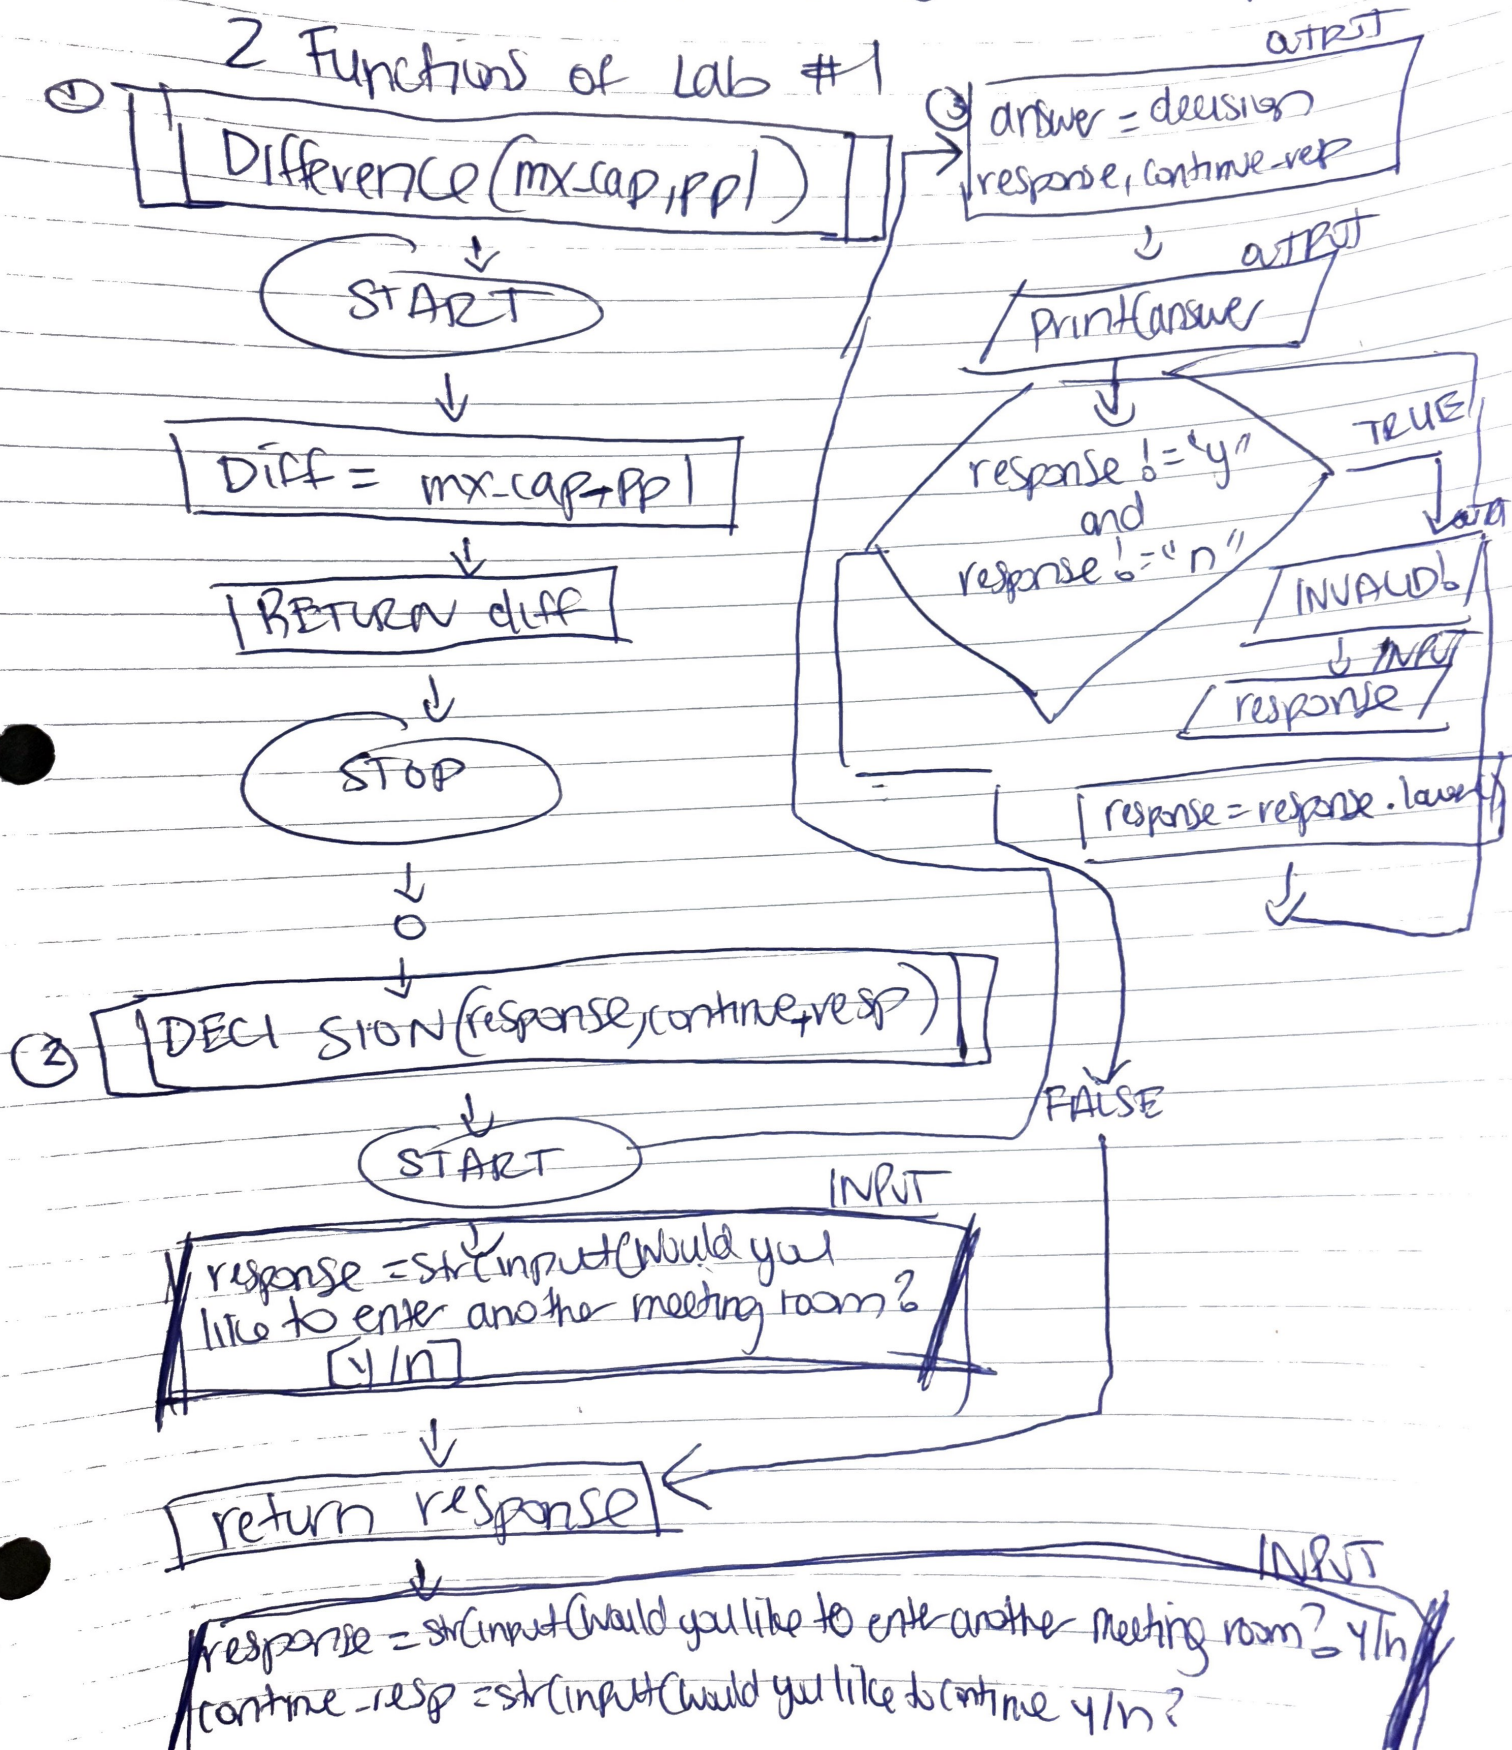 2 Functions of Lab #1
①
Difference(mx_cap,ppl)
START
Diff = mx_cap-ppl
RETURN diff
STOP
②
DECISION(response,continue_resp)
START
INPUT
response =str(input(Would you
like to enter another meeting room?
[y/n]
return response
INPUT
response = str(input(Would you like to enter another meeting room? y/n
continue_resp =str(input(would you like to continue y/n?
OUTPUT
③
answer = decision
response, continue_rep
OUTPUT
print(answer
response != "y"
and
response != "n"
TRUE
INVALID!
INPUT
response
response = response.lower()
FALSE